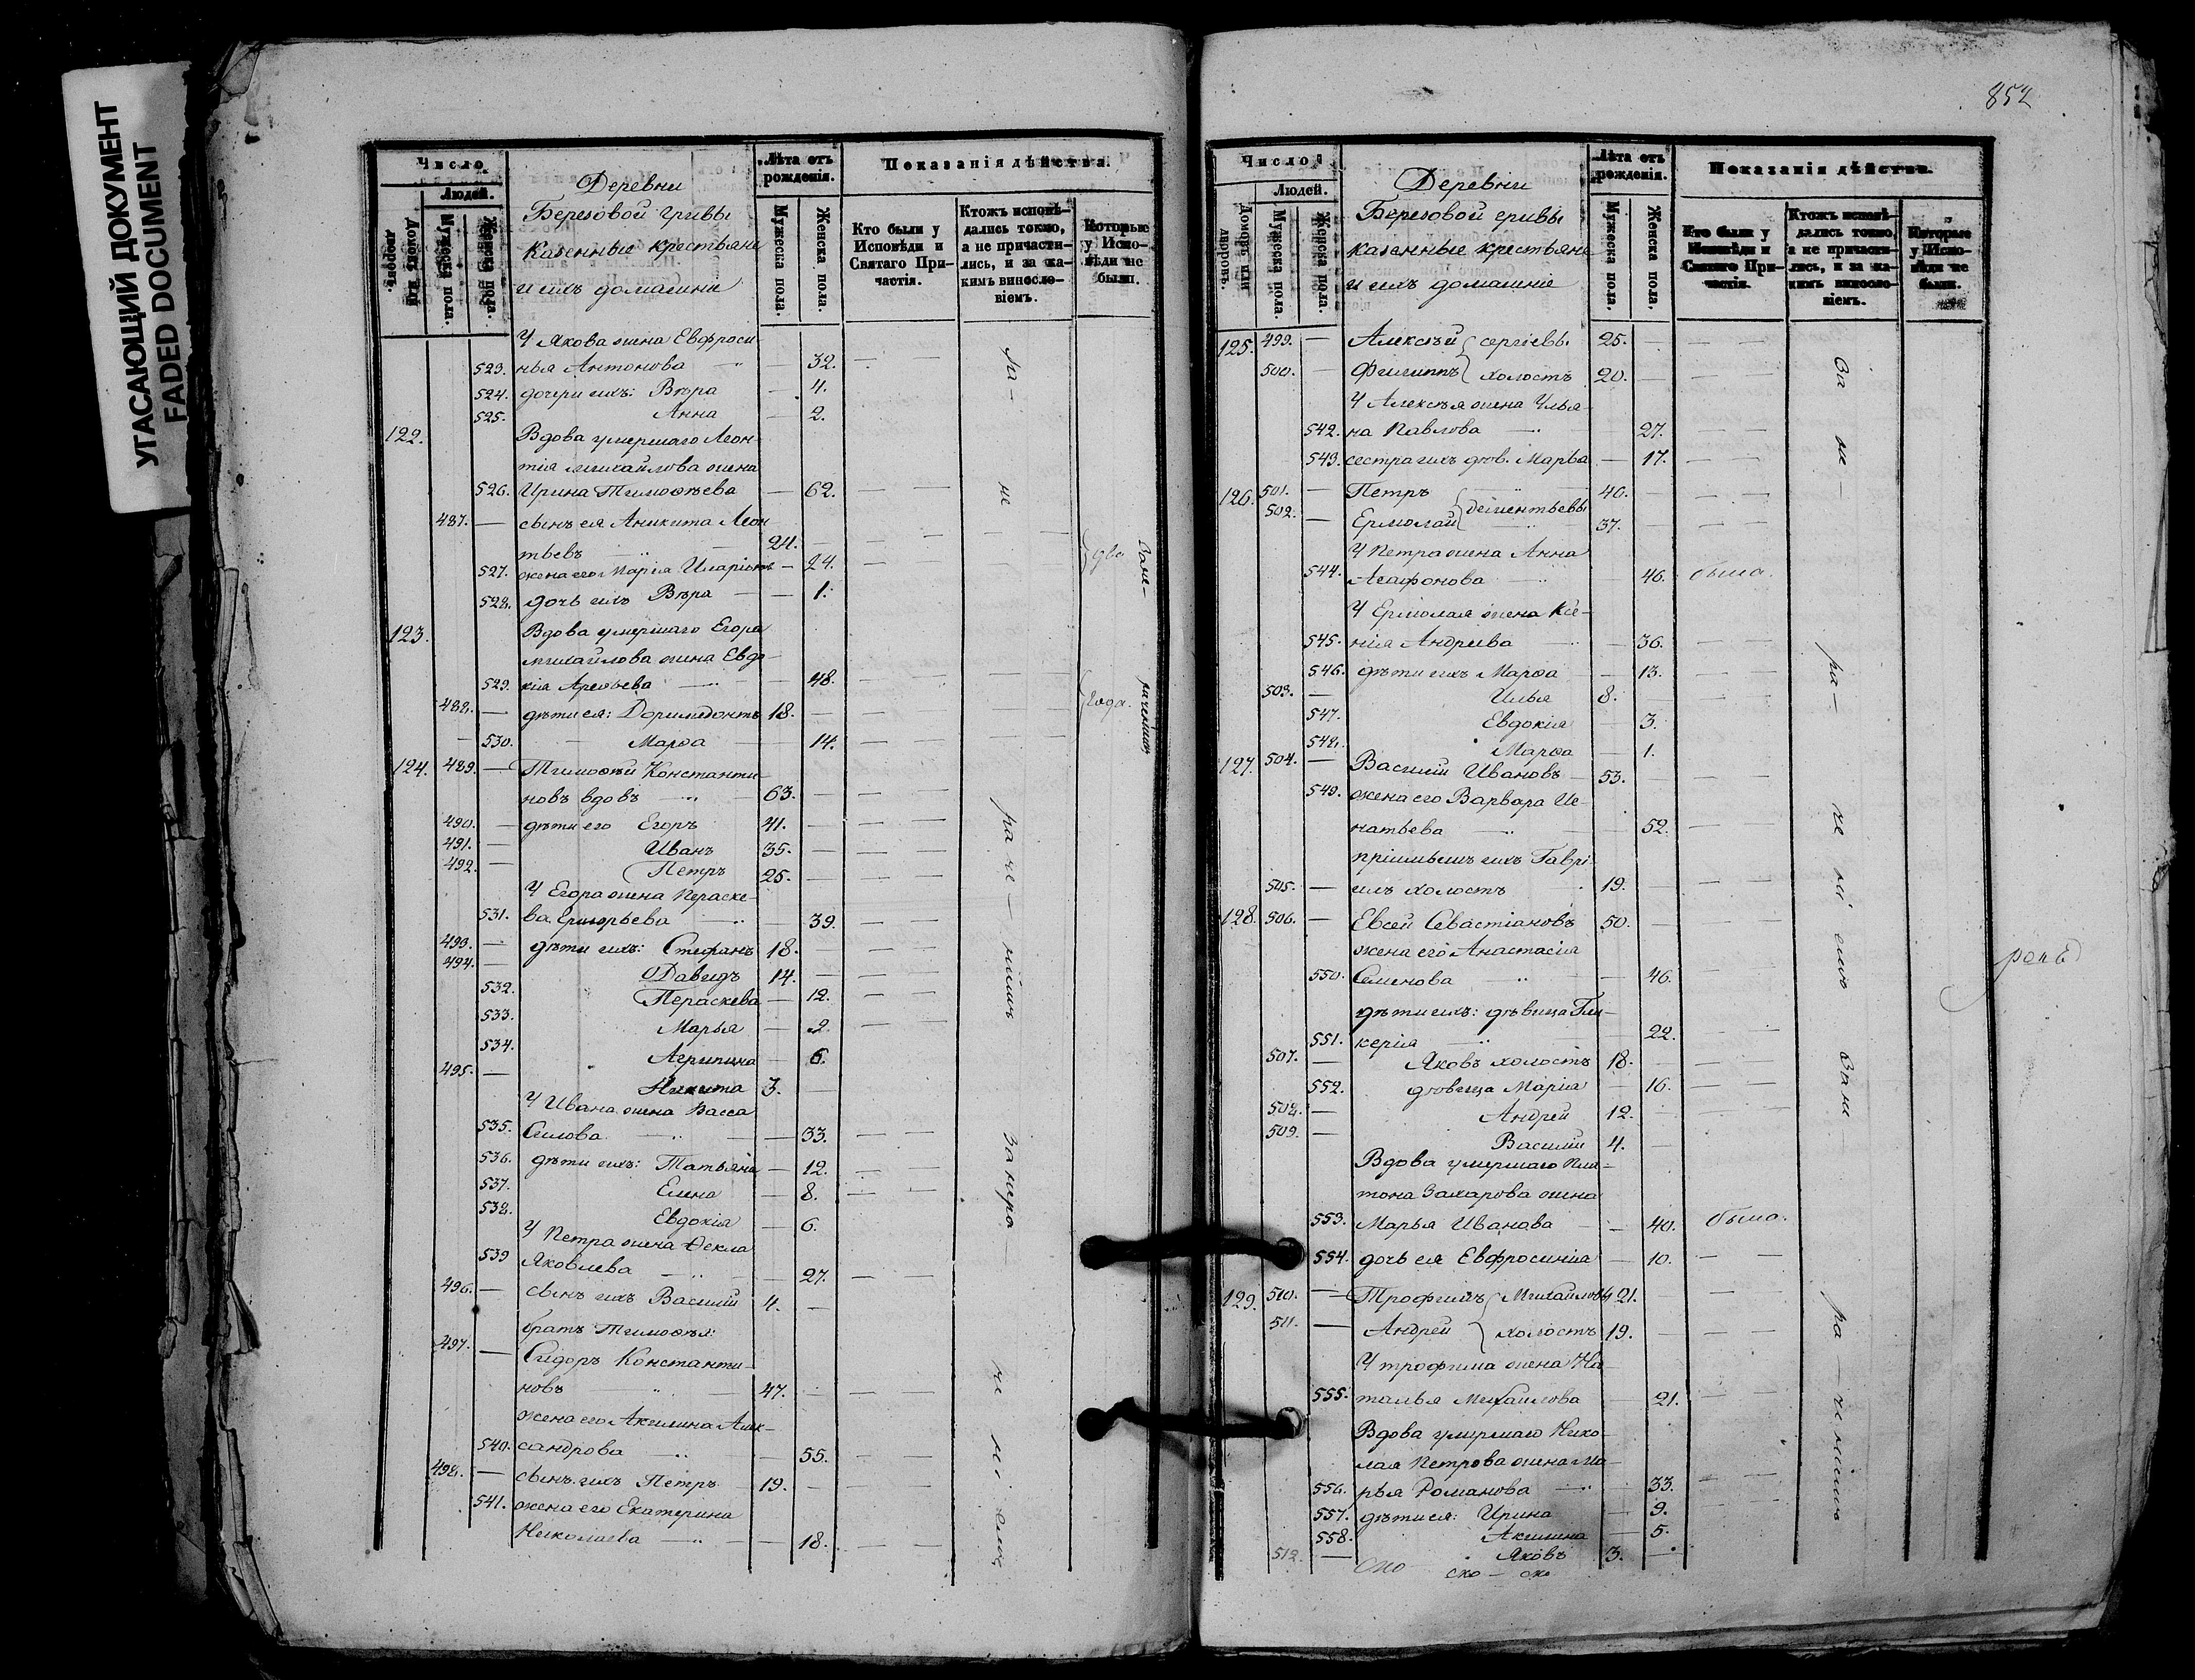 УГАСАЮЩИЙ ДОКУМЕНТ
FADED DOCUMENT
Число
Людей.
Домовъ или дворовъ.
Мужеска пола.
Женска пола.
Деревни
Березовой гривы
казенные крестьяне
и ихъ домашніе
Лѣта отъ рожденія.
Мужеска пола.
Женска пола.
Показанія дѣйства.
Кто были у Исповѣди и Святаго Причастія.
Ктожъ исповѣдались токмо, а не причастились, и за какимъ винословіемъ.
Которые у Исповѣди не были.
У Якова жена Евфроси
523. нья Антонова — 32.
524. дочери ихъ: Вѣра — 4.
525. Анна — 2.
122. Вдова умершаго Леон
тія Михайлова жена
526. Ирина Тимофѣева — 62.
487. — сынъ ея Аникита Леон
тьевъ 24. —
527. жена его Марія — 24.
528. дочь ихъ Вѣра — 1.
123. Вдова умершаго Егора
Михайлова жена Евдо
529. кія Арефьева — 48.
488. — дѣти ея: Доримедонтъ 18. —
530. Марѳа — 14.
124. 489. — Тимоѳѣй Константи
новъ вдовъ 63. —
490. — дѣти его Егоръ 41. —
491. — Иванъ 35. —
492. — Петръ 25. —
У Егора жена Параске
531. ва Григорьева — 39.
493. — дѣти ихъ: Стефанъ 18. —
494. — Давидъ 14. —
532. Параскева — 12.
533. Марья — 2.
534. Агрипина — 6.
495. — Никита 3. —
У Ивана жена Васса
535. Силова — 33.
536. дѣти ихъ: Татьяна — 12.
537. Елена — 8.
538. Евдокія — 6.
У Петра жена Ѳекла
539 Яковлева — 27.
496. — сынъ ихъ Василій 4. —
братъ Тимоѳѣя:
497. — Сидоръ Константи
новъ 47. —
жена его Акилина Алек
540. сандрова — 55.
498. — сынъ ихъ Петръ 19. —
541. жена его Екатерина
Николаева — 18.
852
Число
Людей.
Домовъ или дворовъ.
Мужеска пола.
Женска пола.
Деревни
Березовой гривы
казенные крестьяне
и ихъ домашніе
Лѣта отъ рожденія.
Мужеска пола.
Женска пола.
Показанія дѣйства.
Кто были у Исповѣди и Святаго Причастія.
Ктожъ исповѣдались токмо, а не причастились, и за какимъ винословіемъ.
Которые у Исповѣди не были.
125. 499. — Алексѣй Сергіевы 25. —
500. — Филиппъ холостъ 20. —
У Алексѣя жена Улья
542. на Павлова — 27.
543. сестра ихъ дѣв. Марья — 17.
126. 501. — Петръ Дементьевы 40. —
502. — Ермолай 37. —
У Петра жена Анна
544. Агафонова — 46. была.
У Ермолая жена Ксе
545. нія Андреева — 36.
546. дѣти ихъ Марѳа — 13.
503. — Илья 8. —
547. Евдокія — 3.
548. Марѳа — 1.
127. 504. — Василій Ивановъ 53. —
549. жена его Варвара Иг
натьева — 52.
пріимышъ ихъ Гаврі
505. — илъ холостъ 19. —
128. 506. — Евсей Севастіановъ 50. —
жена его Анастасія
550. Семенова — 46.
дѣти ихъ: дѣвица Гли
551. керія — 22.
507. — Яковъ холостъ 18. —
552. дѣвица Марія — 16.
508. — Андрей 12. —
509. — Василій 4. —
Вдова умершаго Пла
тона Захарова жена
553. Марья Иванова — 40. была.
554. дочь ея Евфросинія — 10.
129. 510. — Трофимъ Михайловы 21. —
511. — Андрей холостъ 19. —
У Трофима жена На
555. талья Михайлова — 21.
Вдова умершаго Нико
лая Петрова жена Ма
556. рья Романова — 33.
557. дѣти ея: Ирина — 9.
558. Акилина — 5.
512. — Яковъ 3. —